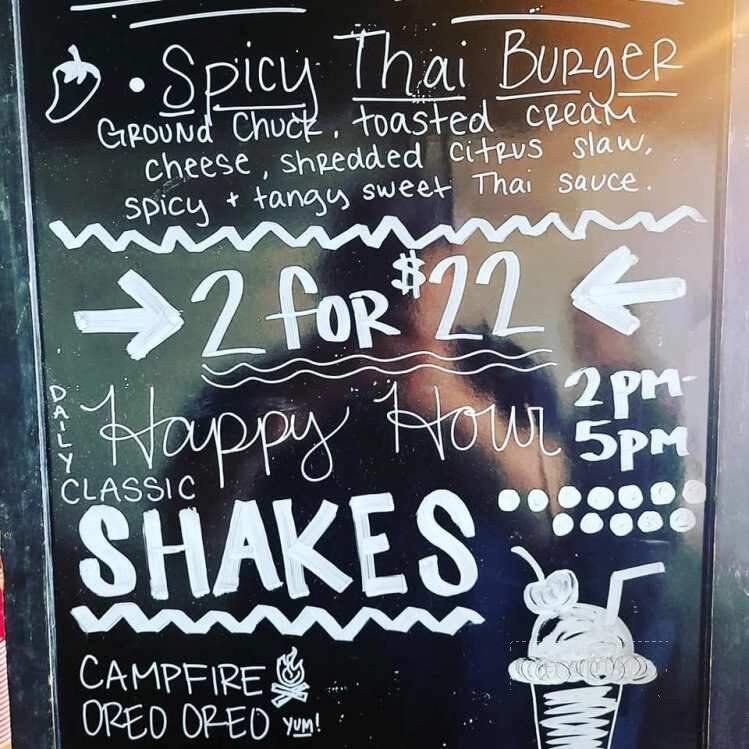 • Spicy Thai Burger
Ground Chuck, toasted cream
cheese, shredded citrus slaw,
spicy + tangy sweet Thai sauce.
2 for $22
DAILY
Happy Hour
2pm-
5pm
CLASSIC
SHAKES
CAMPFIRE
OREO OREO YUM!